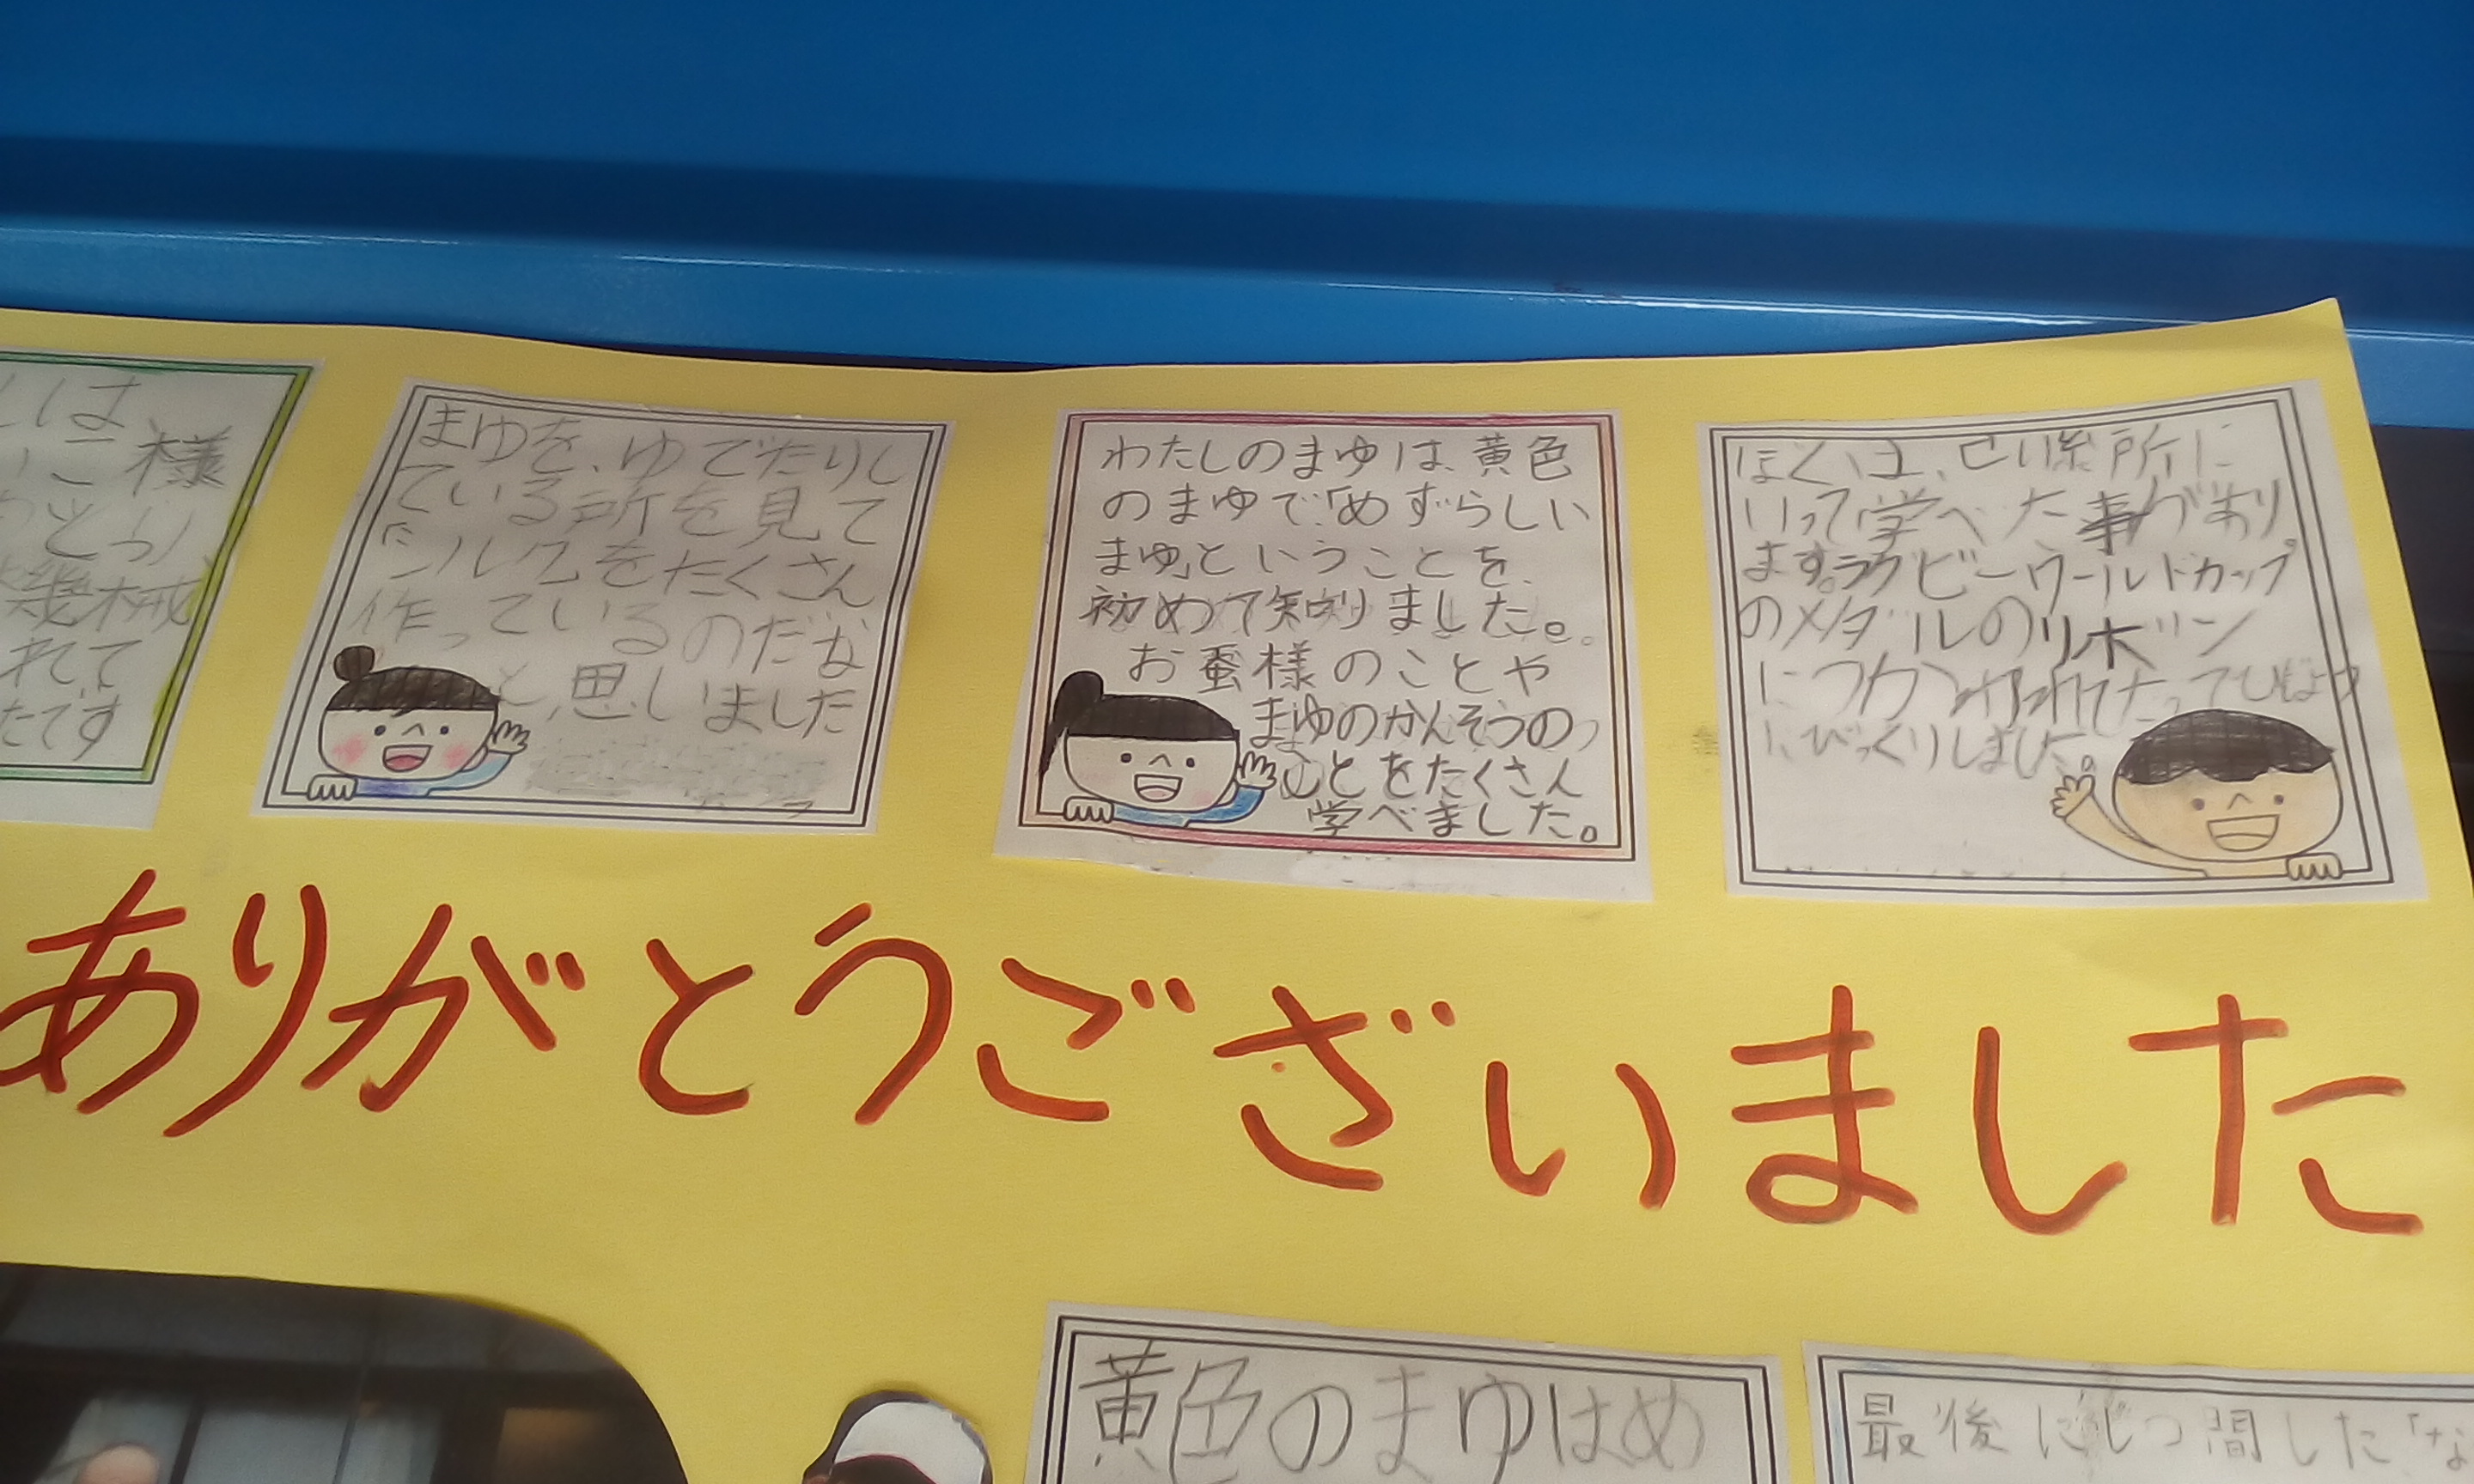 しは
こ様
機械
れて
たです
まゆを、ゆでたりし
ている所を見て
シルクをたくさん
作っているのだな
と、思しいました
わたしのまゆは、黄色
のまゆで「めずらしい
まゆ」ということを、
初めて知りました。
お蚕様のことや
まゆのかんそうの
ことをたくさん
学べました。
ぼくは、せい糸所に
いって学べた事があり
ます。ラグビーワールドカップ
のメダルのリボン
につかわれてたってひじょう
にびっくりしました。
ありがとうございました
黄色のまゆはめ
最後にしつ間した「な